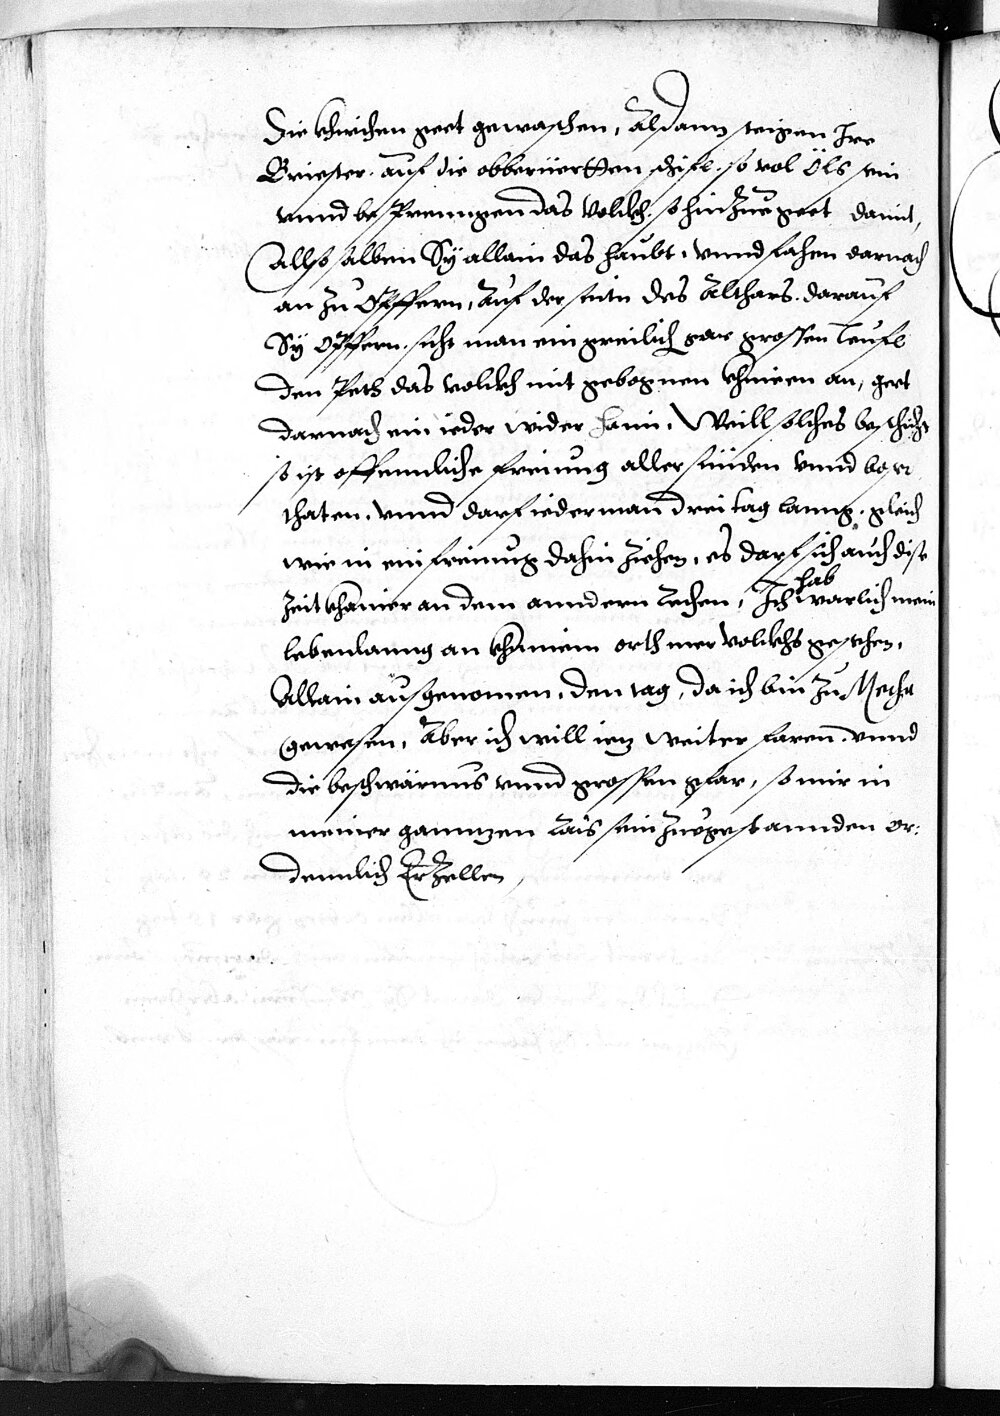 Die khirchen geet gewaschen, Alsdann steigen Ire
Briester. auf die obberüertten schifl. so vol Öls sein
vnnd besprenngen das Volckh. so hinzue geet damit,
Also salben Sy allain das haubt, vnnd fahen darnach
an zu Opffern, Auf der seitn des Althars. darauf
Sy Opffern. sicht man ein greilich gar grossen Teufl
den Peth das volckh mit gebognen khnieen an, geet
darnach ein ieder wider haim. Weill solches beschicht
so ist offennliche freiung aller sünden vnnd bosn
thaten. vnnd darf iederman drei tag lanng. gleich
wie in ein freiung dahin ziehen, es darf sich auch dise
zeit khainer an dem anndern Rechen, Ich hab warlich mein
lebenlanng an khainem orth mer volckhs gesehen,
Allain ausgenomen, den tag, da ich bin zu Mecha
gewesen, Aber ich will iez weiter faren. vnnd
die beschwärnus vnnd grossen gfar, so mir in
meiner ganntzen Rais sein zuegestannden or:
dennlich Erzellen,